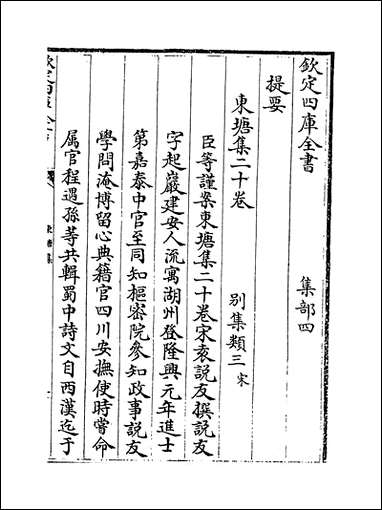 欽定四庫全書　集部四
提要
東塘集二十卷　別集類三宋
臣等謹案東塘集二十卷宋袁說友撰說友
字起巖建安人流寓湖州登隆興元年進士
第嘉泰中官至同知樞密院參知政事說友
學問淹博留心典籍官四川安撫使時嘗命
属官程遇孫等共輯蜀中詩文自西漢迄于
欽定四庫全書
東塘集